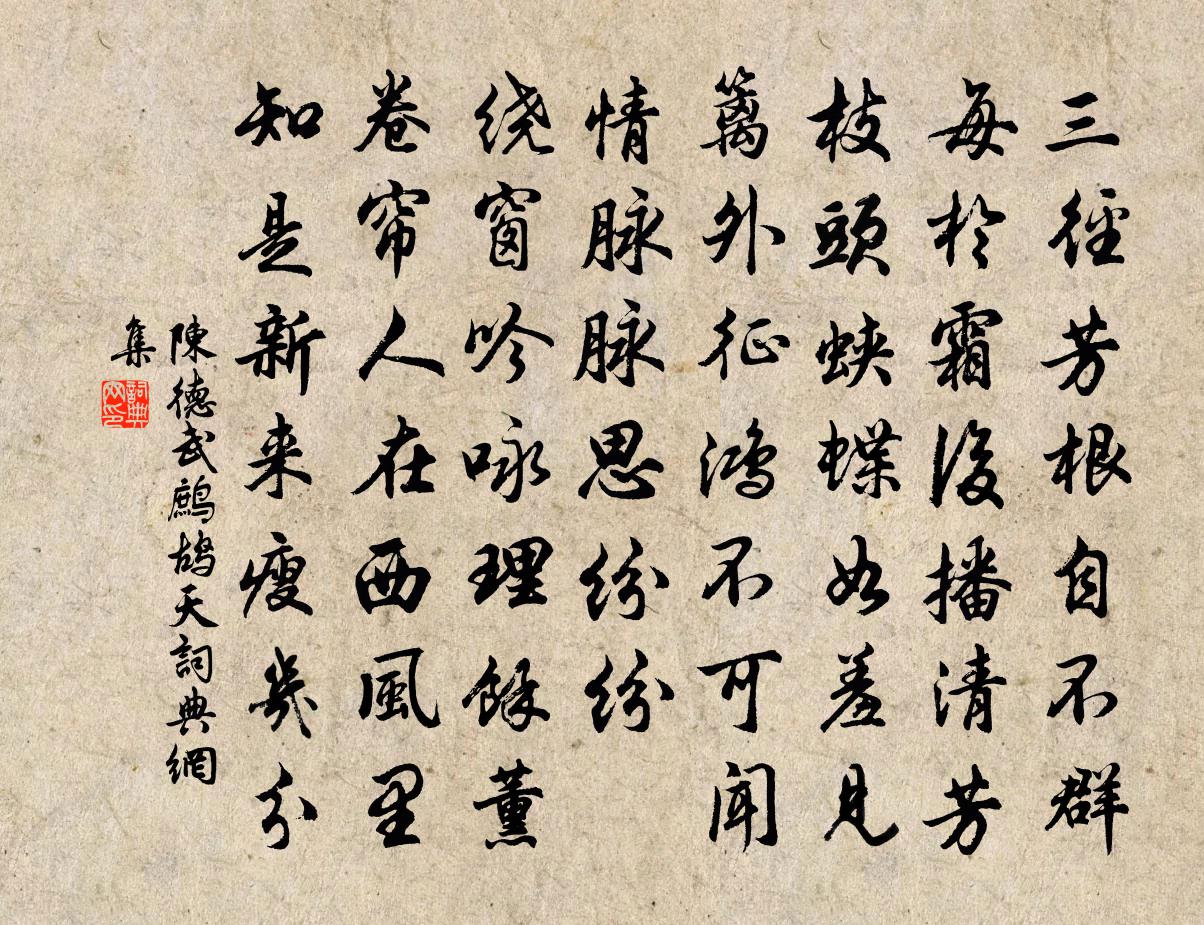 三徑芳根自不群
每於霜後播清芳
枝頭蛺蝶如羞見
篱外征鴻不可聞
情脉脉思纷纷
绕窗吟咏理餘薰
卷帘人在西風里
知是新来瘦幾分
陳德武鷓鴣天詞典網
集
詞典网印